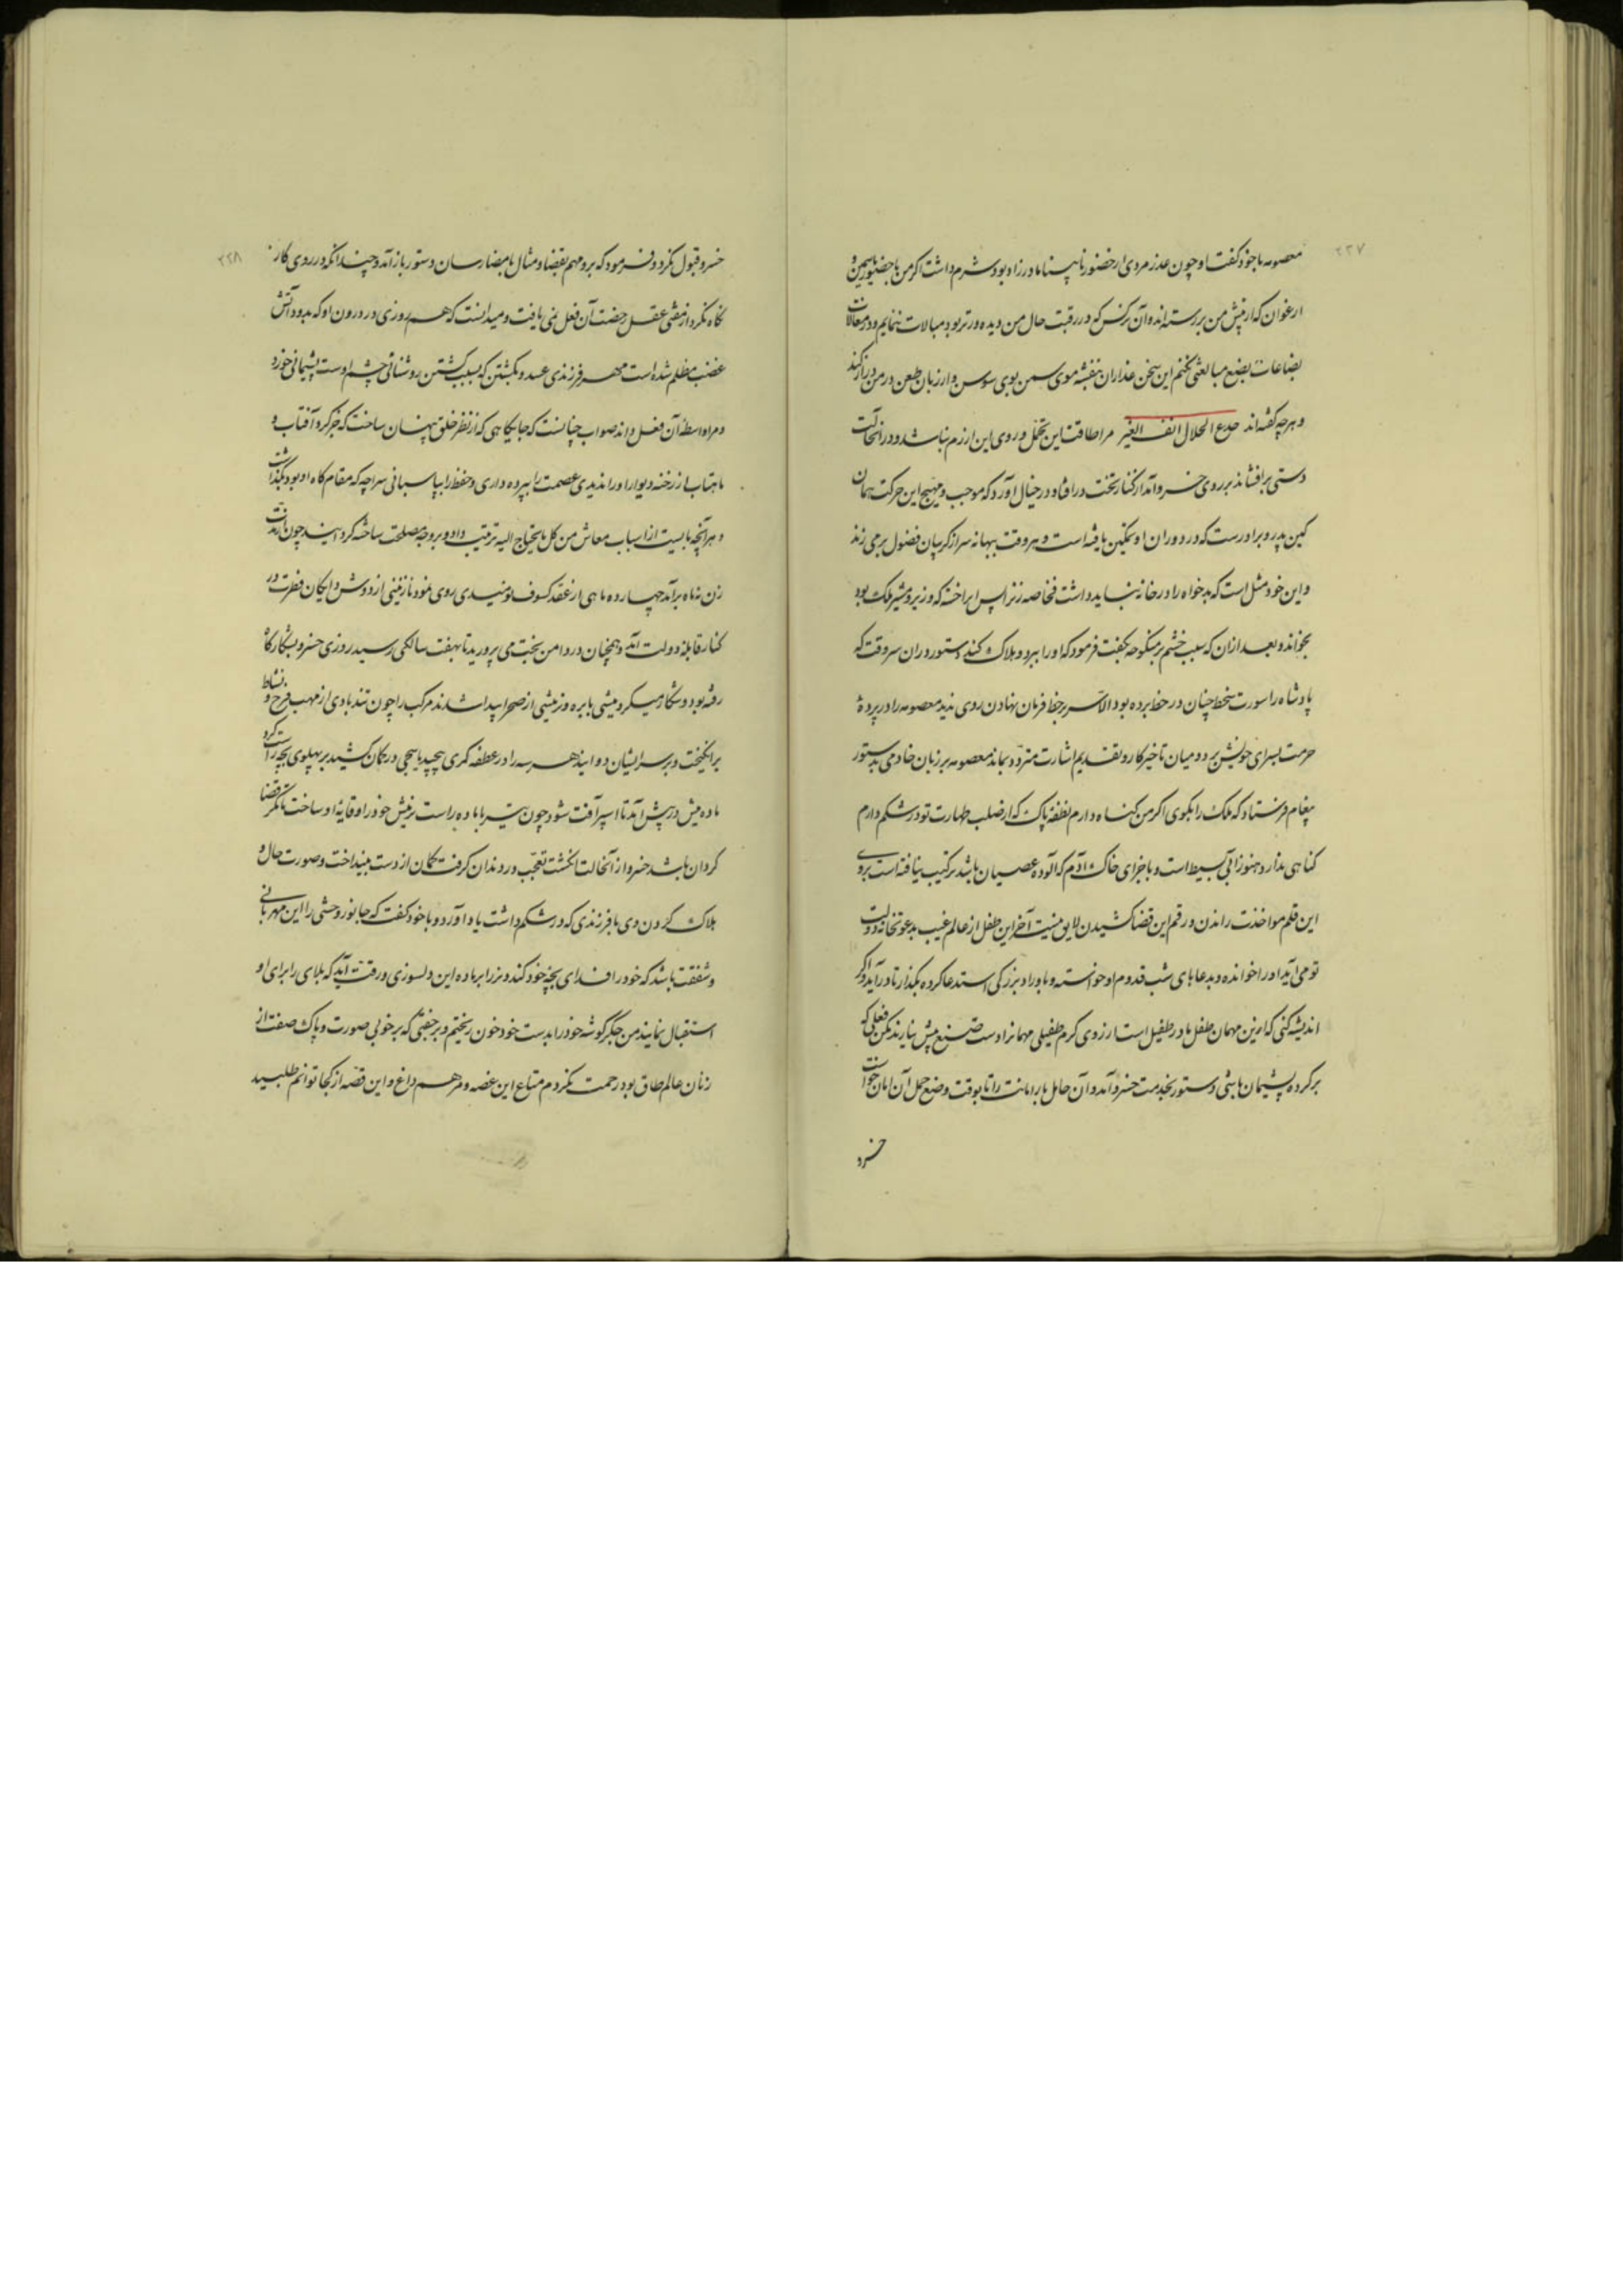 ۲۲۷
معصومه با خود گفت او چون عذر مردی از حضور نابینا مادرزاد بود شرم داشت اگر من با حضور یاسمین و
ارغوان که از پیش من بر رسته‌اند و آن نرگس که در رقبت حال من دیده‌ور تر بود مبالات ننمایم و در مغالات
بضاعات بضع مبالغتی نکنم این سخن عذاران بنفشه موی سمن بوی سوسن وار زبان طعن در من دراز کنند
و هرچه گفته‌اند جدع الحلال انف الغیر مرا طاقت این تحمل و روی این ازرم نباشد و در انحالت
دستی برافشاند بر روی خسرو آمد از کنار تخت درافتاد در خیال آورد که موجب و مهیج این حرکت همان
کین پدر و برادرست که در دوران او تمکین یافته است و هر وقت ببهانه سر از گریبان فضول برمی زند
و این خود مثل است که بدخواه را در خانه نباید داشت فخاصه زنرا پس ابراخته که وزیر و مشیر ملک بود
بخواند و بعد از ان که سبب خشم بر منکوحه بگفت فرمود که او را ببرد و هلاک کند دستور در ان سر وقت که
پادشاه را سورت سخط چنان در خط برده بود الا سر بر خط فرمان نهادن روی ندید معصومه را در پرده
حرمت بسرای خویش برد و میان تاخیر کار و تقدیم اشارت متردد بماند معصومه بر زبان خادمی بدستور
پیغام فرستاد که ملک را بگوی اگر من گناه دارم نطفه پاک که از صلب طهارت تو در شکم دارم
گناهی ندارد هنوز آبی بسیط است و با جزای خاک آدم که آلوده عصیان باشد ترکیب نیافته است بروی
این قلم مواخذت راندن و رقم این قضا کشیدن لایق نیست آخر این طفل از عالم غیب بدعوتخانه دولت
تو می آید او را خوانده و بدعاهای شب قدوم او خواسته و باوراد بزرگی استدعا کرده بگذار تا درآید و اگر
اندیشه کنی که ازین مهمان طفل مادر طفیل است از روی کرم طفیلی مهمانرا دست منع پیش نیارند مکن فعلی که
بر کرده پشیمان باشی دستور بخدمت خسرو آمد و آن حامل بار امانت را تا بوقت وضع حمل آن امان خواست
خسرو
۲۲۸
خسرو قبول نکرد و فرمود که برو مهم بقضا و مثال بامضا رسان دستور باز آمد و چندانکه در روی کار
نگاه نکرد از مفتی عقل رخصت آن فعل نمی یافت و میدانست که هم روزی در درون او که بدود آتش
غضب مظلم شده است مهر فرزندی عسد و بکشتن که بسبب کشتن روشنائی چشم اوست پشیمانی خورد
و مرا واسطه آن فعل داند صواب چنانست که جایگاهی که از نظر خلق پنهان ساخت که جز گرد آفتاب و
ماهتاب از رخنه دیوار او را ندیدی عصمت را بپرده داری و حفظ را بپاسبانی سراچه که مقام گاه او بود بگذاشت
و هر آنچه بایست از اسباب معاش من کل ما یحتاج الیه ترتیب داد و بر وجه مصلحت ساخته گردانید چون مدت
زن نه ماه برآمد چهارده ماهی از عقد کسوف نومیدی روی نمود نازنینی از دوش دایگان فطرت در
کنار قابله دولت آمد و همچنان در دامن بخت می پرورید تا بهفت سالگی رسید روزی خسرو بشکارگاه
رفته بود و شکار میکرد میشی با بره و نرمیشی از صحرا پیدا شدند مرکب را چون تندبادی از مهب فرح و نشاط
برانگیخت و بر سر ایشان دوانید هر سه را در عطفه کمری پیچید یاسجی در کمان کشید بر پهلوی بچه راست کرد
ماده میش در پیش آمد تا سپر آفت شود چون تیر با ماده راست نرمیش خود را وقایه او ساخت تا مگر قضا
گردان باشد خسرو از آنحالت انگشت تعجب در دندان گرفت کمان از دست بینداخت و صورت حال و
هلاک کردن وی با فرزندی که در شکم داشت یاد آورد و با خود گفت که جانور وحشی را این مهربانی
و شفقت باشد که خود را فدای بچه خود کند و نر را بر ماده این دلسوزی و رقت آید که بلای را برای او
استقبال نماید من جگر گوشه خود را بدست خود خون ریختم و بر جفتی که بر خوبی صورت و پاک صفت از
زنان عالم طاق بود رحمت نکردم متاع این غصه و مرهم داغ و این قصه از کجا توانم طلبید